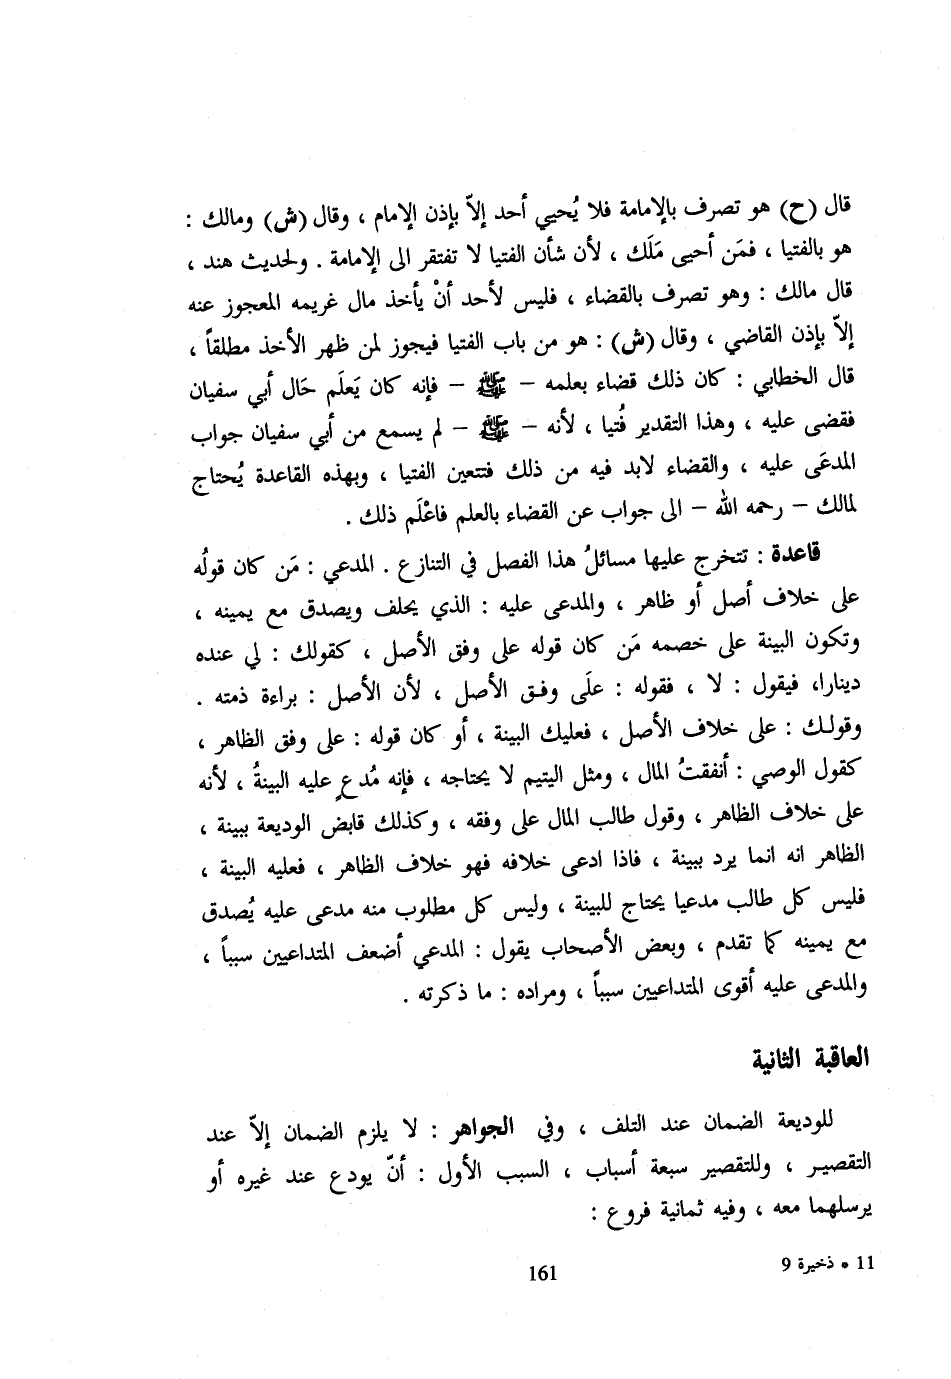 قال (ح) هو تصرف بالإمامة فلا يُحيي أحد إلاّ بإذن الإمام ، وقال (ش) ومالك :
هو بالفتيا ، فمَن أحيى مَلَك ، لأن شأن الفتيا لا تفتقر الى الإمامة . ولحديث هند ،
قال مالك : وهو تصرف بالقضاء ، فليس لأحد أنْ يأخذ مال غريمه المعجوز عنه
إلاّ بإذن القاضي ، وقال (ش) : هو من باب الفتيا فيجوز لمن ظهر الأخذ مطلقاً ،
قال الخطابي : كان ذلك قضاء بعلمه – ﷺ – فإنه كان يَعلَم حَال أبي سفيان
فقضى عليه ، وهذا التقدير فُتيا ، لأنه – ﷺ – لم يسمع من أبي سفيان جواب
المدعَى عليه ، والقضاء لابد فيه من ذلك فتتعين الفتيا ، وبهذه القاعدة يُحتاج
لمالك – رحمه الله – الى جواب عن القضاء بالعلم فاعْلَم ذلك .
قاعدة : تتخرج عليها مسائلُ هذا الفصل في التنازع . المدعي : مَن كان قولُه
على خلاف أصل أو ظاهر ، والمدعى عليه : الذي يحلف ويصدق مع يمينه ،
وتكون البينة على خصمه مَن كان قوله على وفق الأصل ، كقولك : لي عنده
دينارا، فيقول : لا ، فقوله : علَى وفق الأصل ، لأن الأصل : براءة ذمته .
وقولك : على خلاف الأصل ، فعليك البينة ، أو كان قوله : على وفق الظاهر ،
كقول الوصي : أنفقتُ المال ، ومثل اليتيم لا يحتاجه ، فإنه مُدعٍ عليه البينةُ ، لأنه
على خلاف الظاهر ، وقول طالب المال على وفقه ، وكذلك قابض الوديعة ببينة ،
الظاهر انه انما يرد ببينة ، فاذا ادعى خلافه فهو خلاف الظاهر ، فعليه البينة ،
فليس كل طالب مدعيا يحتاج للبينة ، وليس كل مطلوب منه مدعى عليه يُصدق
مع يمينه كما تقدم ، وبعض الأصحاب يقول : المدعي أضعف المتداعيين سبباً ،
والمدعى عليه أقوى المتداعيين سبباً ، ومراده : ما ذكرته .
العاقبة الثانية
للوديعة الضمان عند التلف ، وفي الجواهر : لا يلزم الضمان إلاّ عند
التقصير ، وللتقصير سبعة أسباب ، السبب الأول : أنّ يودع عند غيره أو
يرسلهما معه ، وفيه ثمانية فروع :
11 * ذخيرة 9
161